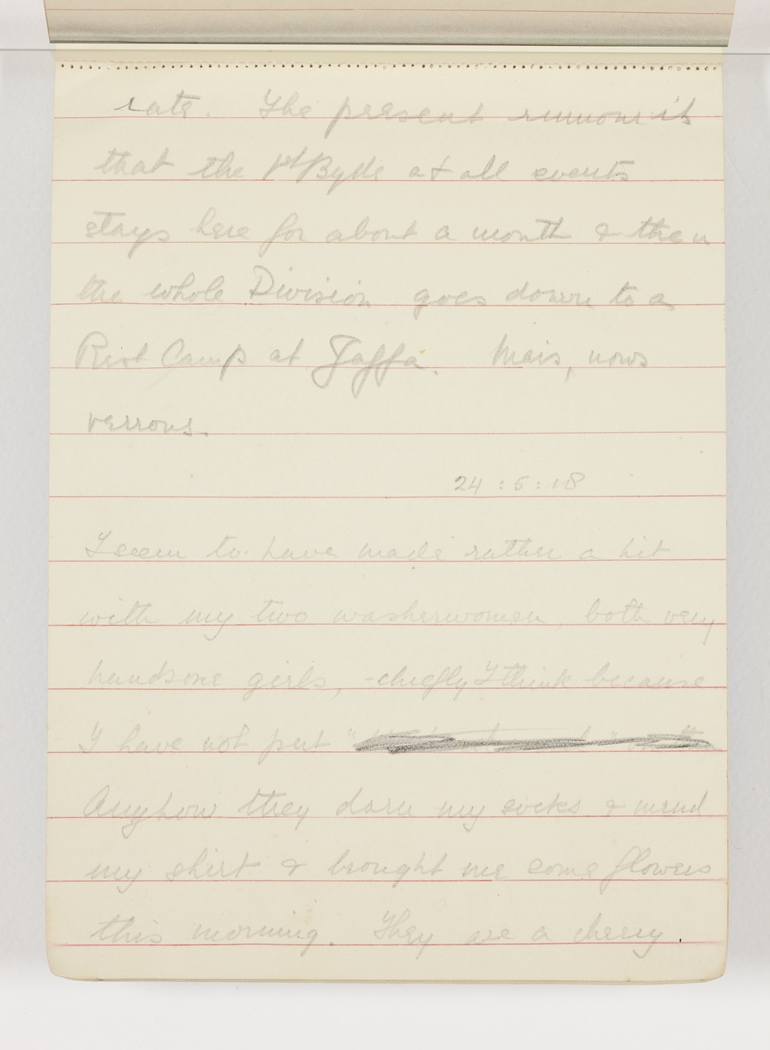 rate. The present rumour is
that the 1st Bgde at all events
stays here for about a month & then
the whole Division goes down to a
Rest Camp at Jaffa. Mais, nous
verrons.
24:5:18
I seem to have made rather a hit
with my two washerwomen, both very
handsome girls, - chiefly I think because
I have not put
Anyhow they darn my socks & mend
my shirt & brought me some flowers
this morning. They are a cheery